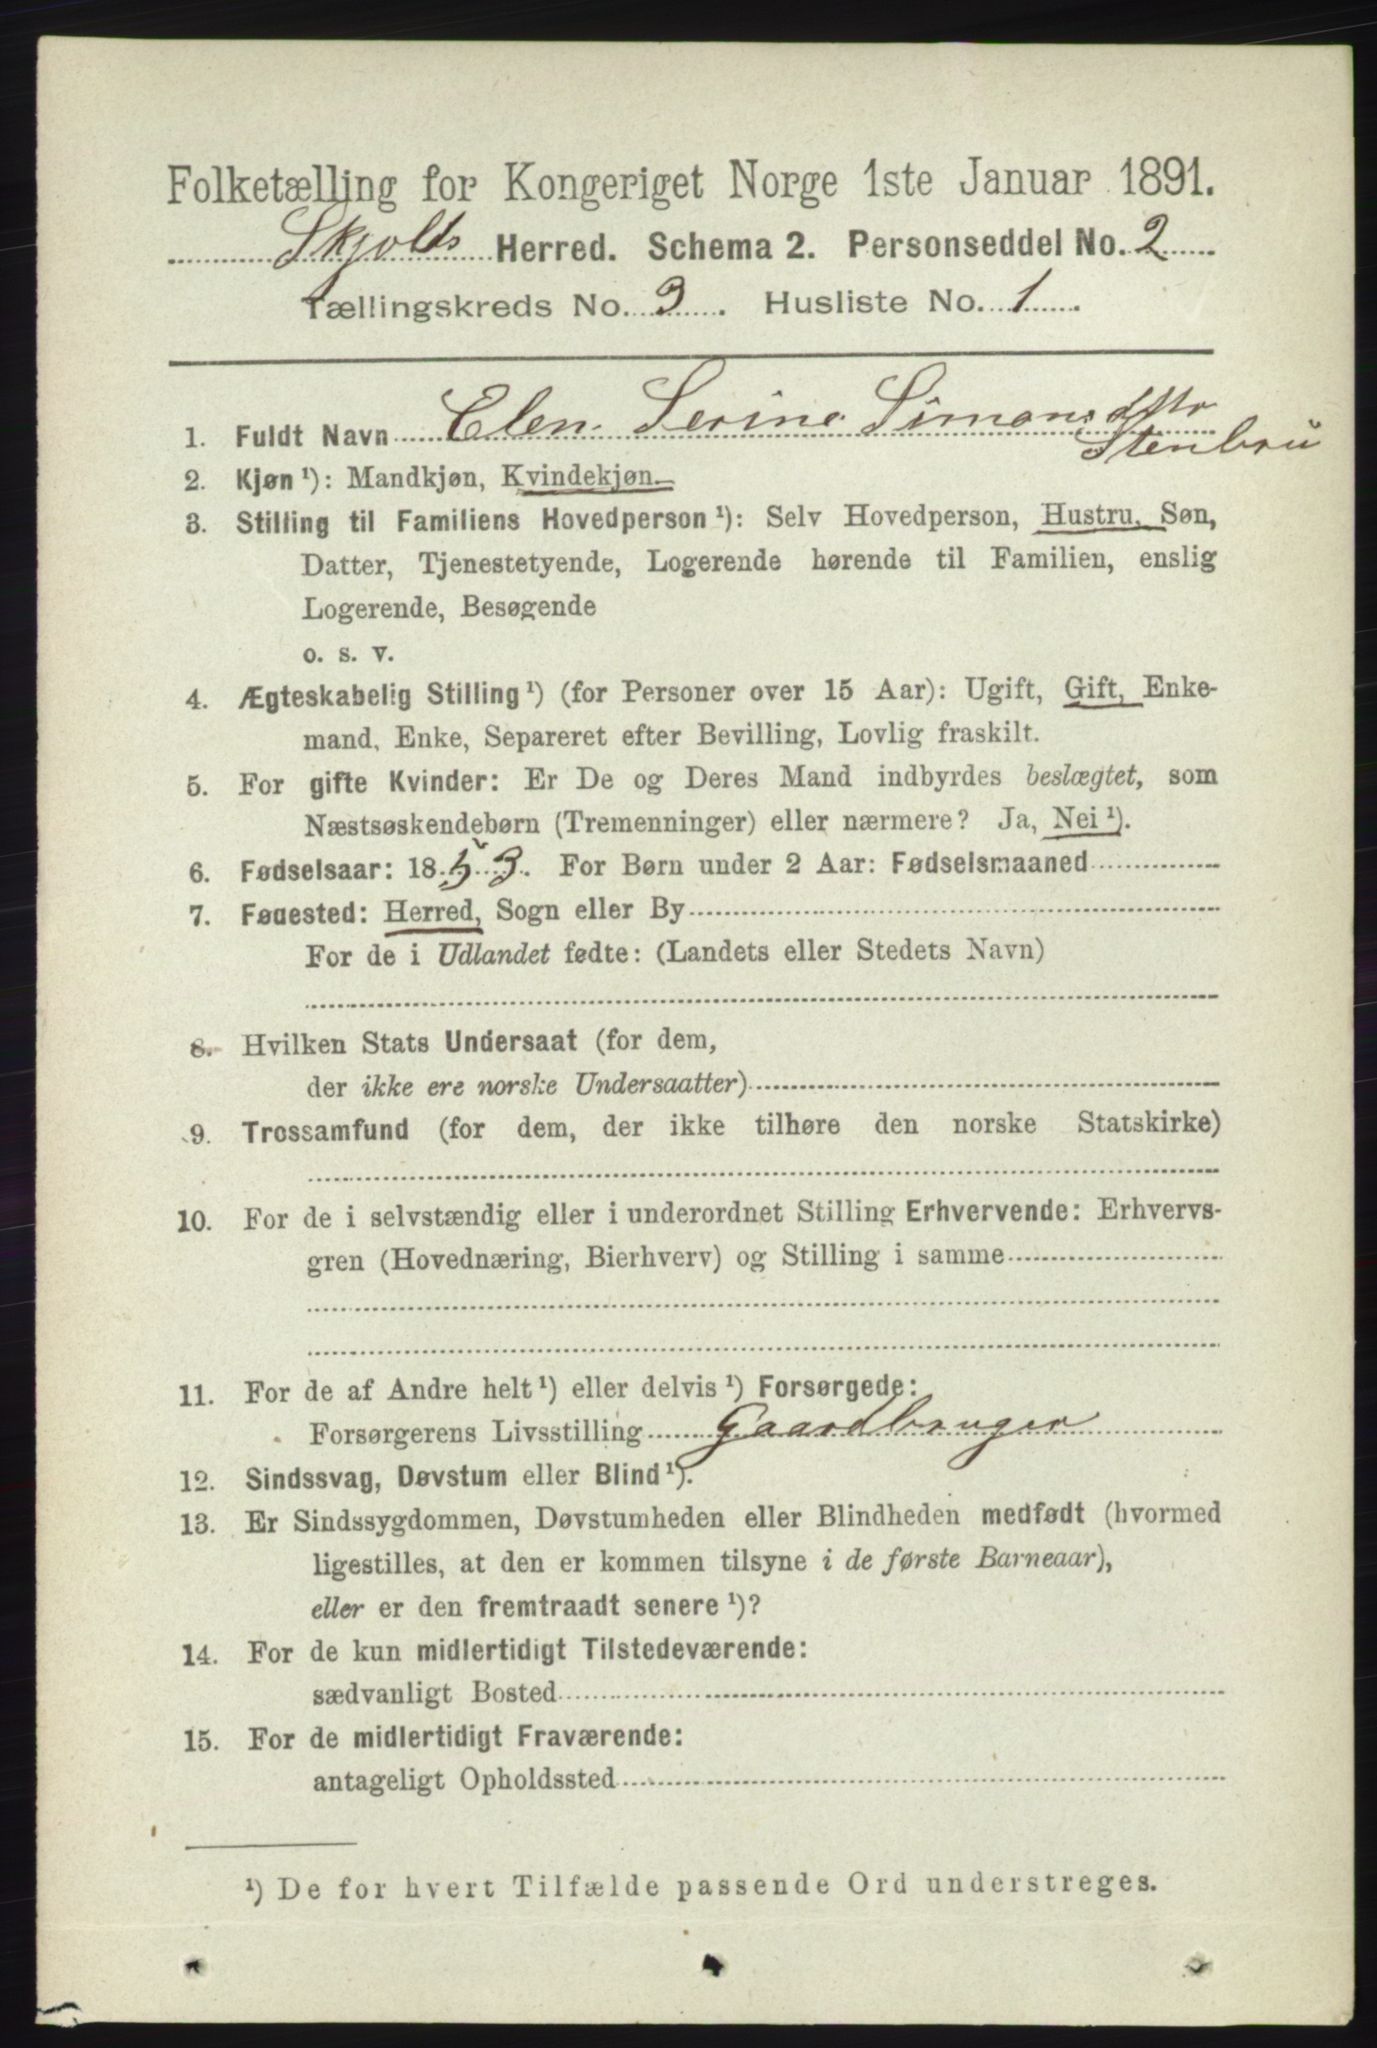 Folketælling for Kongeriget Norge 1ste Januar 1891.
Skjolds Herred. Schema 2. Personseddel No. 2
Tællingskreds No. 3. Husliste No. 1
1. Fuldt Navn Elen Serine Simonsdttr
Stenbru
2. Kjøn ¹): Mandkjøn, Kvindekjøn.
3. Stilling til Familiens Hovedperson ¹): Selv Hovedperson, Hustru, Søn,
Datter, Tjenestetyende, Logerende hørende til Familien, enslig
Logerende, Besøgende
o. s. v.
4. Ægteskabelig Stilling ¹) (for Personer over 15 Aar): Ugift, Gift, Enke-
mand, Enke, Separeret efter Bevilling, Lovlig fraskilt.
5. For gifte Kvinder: Er De og Deres Mand indbyrdes beslægtet, som
Næstsøskendebørn (Tremenninger) eller nærmere? Ja, Nei ¹).
6. Fødselsaar: 1853. For Børn under 2 Aar: Fødselsmaaned
7. Føuested: Herred, Sogn eller By
For de i Udlandet fødte: (Landets eller Stedets Navn)
8. Hvilken Stats Undersaat (for dem,
der ikke ere norske Undersaatter)
9. Trossamfund (for dem, der ikke tilhøre den norske Statskirke)
10. For de i selvstændig eller i underordnet Stilling Erhvervende: Erhvervs-
gren (Hovednæring, Bierhverv) og Stilling i samme
11. For de af Andre helt ¹) eller delvis ¹) Forsørgede:
Forsørgerens Livsstilling Gaardbruger
12. Sindssvag, Døvstum eller Blind ¹).
13. Er Sindssygdommen, Døvstumheden eller Blindheden medfødt (hvormed
ligestilles, at den er kommen tilsyne i de første Barneaar),
eller er den fremtraadt senere ¹)?
14. For de kun midlertidigt Tilstedeværende:
sædvanligt Bosted
15. For de midlertidigt Fraværende:
antageligt Opholdssted
¹) De for hvert Tilfælde passende Ord understreges.